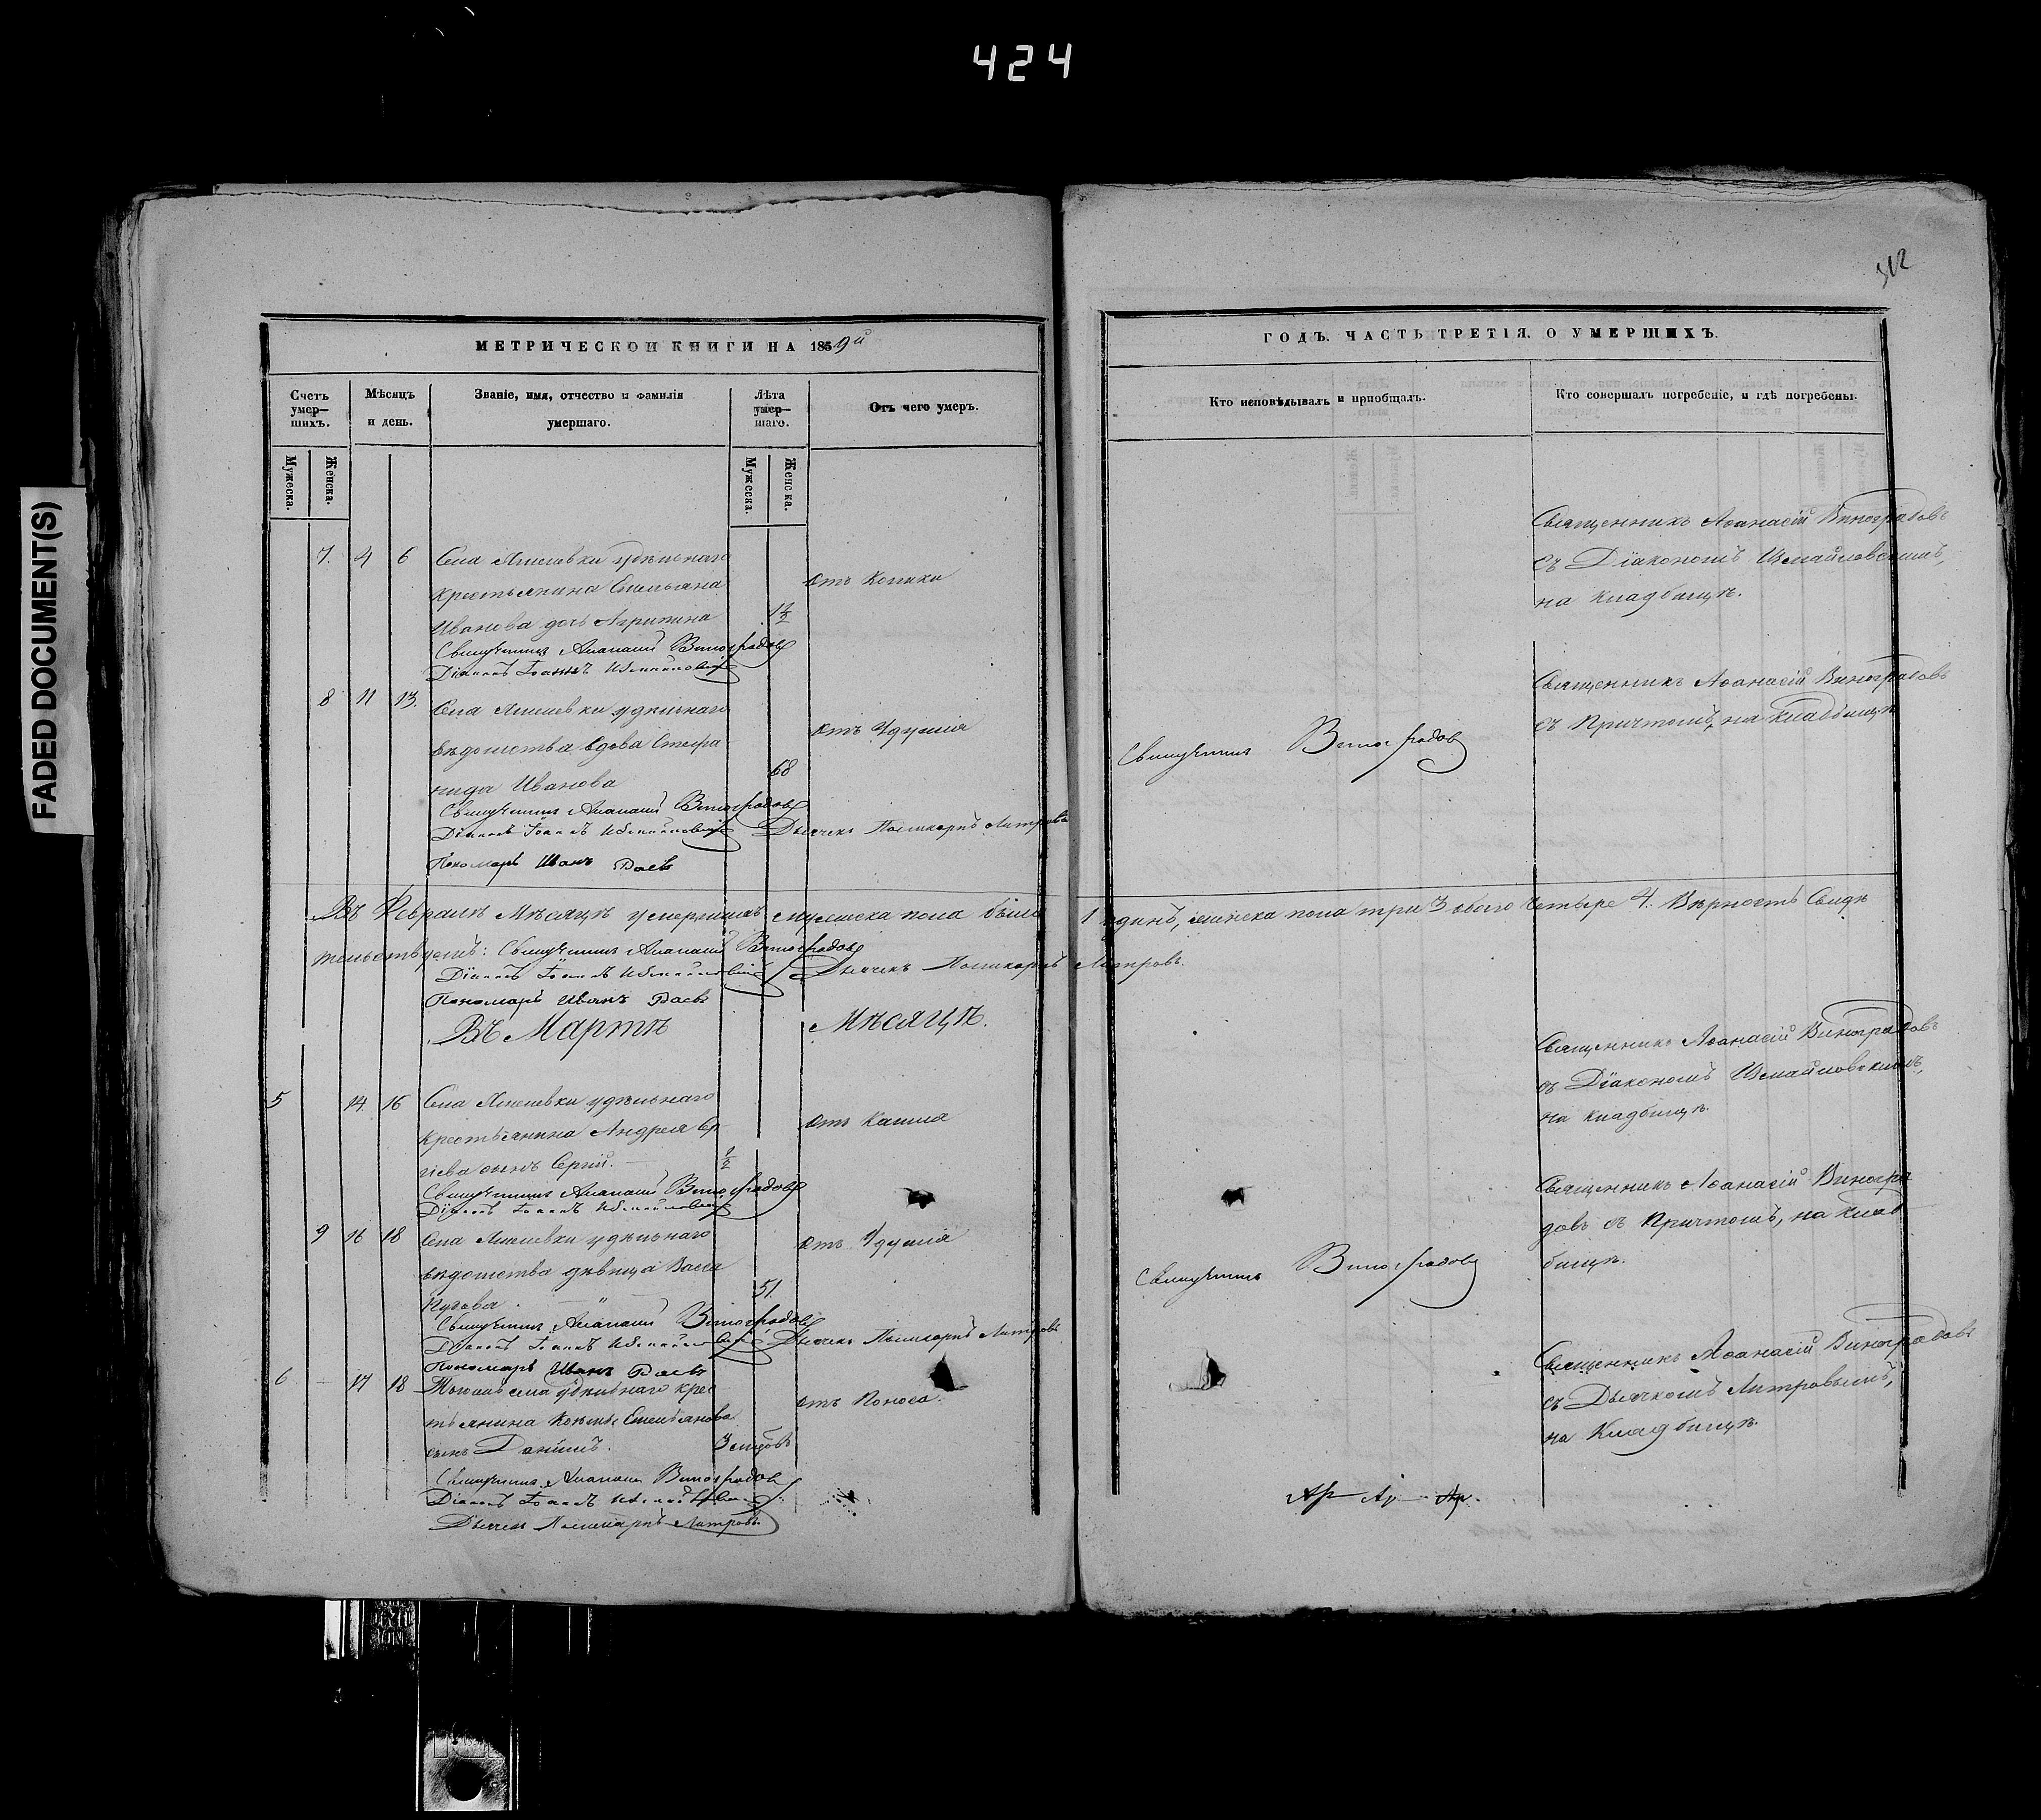 424
FADED DOCUMENT(S)
МЕТРИЧЕСКОИ КНИГИ НА 1859й
Счетъ умер—шихъ.
Мѣсяцъ и день.
Званіе, имя, отчество и фамилія умершаго.
Лѣта умер—шаго.
Отъ чего умеръ.
Мужеска.
Женска.
Мужеска.
Женска.
7. 4 6 Села удѣльнаго
крестьянина Емельяна
отъ Колики
Иванова дочь Агрипина
Священникъ Аѳанасій Виноградовъ
Діаконъ Іоаннъ Измайловскій
8 11 13. Села удѣльнаго
вѣдомства вдова Стефа
отъ Удушія
нида Иванова 68
Священникъ Аѳанасій Виноградовъ
Діаконъ Іоаннъ Измайловскій Дьячекъ Поликарпъ Литровъ
Пономарь Иванъ Раевъ
Въ Февралѣ Мѣсяцѣ умершихъ мужеска пола было 1 одинъ, женска пола три 3 обоего четыре 4. Вѣрность Свидѣ
тельствуемъ: Священникъ Аѳанасій Виноградовъ
Діаконъ Іоаннъ Измайловскій Дьячекъ Поликарпъ Литровъ.
Пономарь Иванъ Раевъ
Въ Мартѣ Мѣсяцѣ.
5 14. 16 Села удѣльнаго
крестьянина Андрея Сер
отъ Кашля
гіева сынъ Сергій. 1/2
Священникъ Аѳанасій Виноградовъ
Діаконъ Іоаннъ Измайловскій
9 16 18 Села удѣльнаго
отъ Удушія
вѣдомства дѣвица Васса
51.
Священникъ Аѳанасій Виноградовъ
Діаконъ Іоаннъ Измайловскій Дьячекъ Поликарпъ Литровъ
Пономарь Иванъ Раевъ
6 17 18 села удѣльнаго крес
тьянина Козьмы Емельянова
отъ Поноса.
сынъ Даніилъ.
Священникъ Аѳанасій Виноградовъ
Діаконъ Іоаннъ Измайловскій
Дьячекъ Поликарпъ Литровъ.
312
ГОДЪ. ЧАСТЬ ТРЕТІЯ. О УМЕРШИХЪ.
Кто исповѣдывалъ и пріобщалъ.
Кто совершалъ погребеніе, и гдѣ погребены.
Священникъ Аѳанасій Виноградовъ
съ Діакономъ Измайловскимъ,
на кладбищѣ.
Священникъ Аѳанасій Виноградовъ
съ Причтомъ, на кладбищѣ
Священникъ Виноградовъ
Священникъ Аѳанасій Виноградовъ
съ Діакономъ Измайловскимъ,
на кладбищѣ.
Священникъ Аѳанасій Виногра
довъ съ Причтомъ, на клад
бищѣ.
Священникъ Виноградовъ
Священникъ Аѳанасій Виноградовъ
съ Дьячкомъ Литровымъ,
на Кладбищѣ.